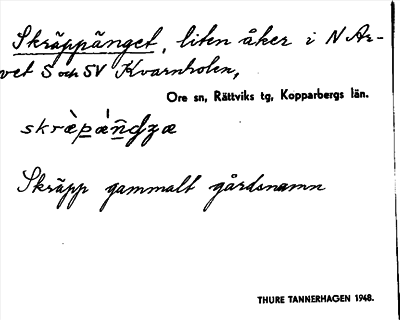 Skräppänget, liten åker i N Ar-
vet S och SV Kvarnholen,
Ore sn, Rättviks tg, Kopparbergs län.
skræ̀pǽnʤæ
Skräpp gammalt gårdsnamn
THURE TANNERHAGEN 1948.